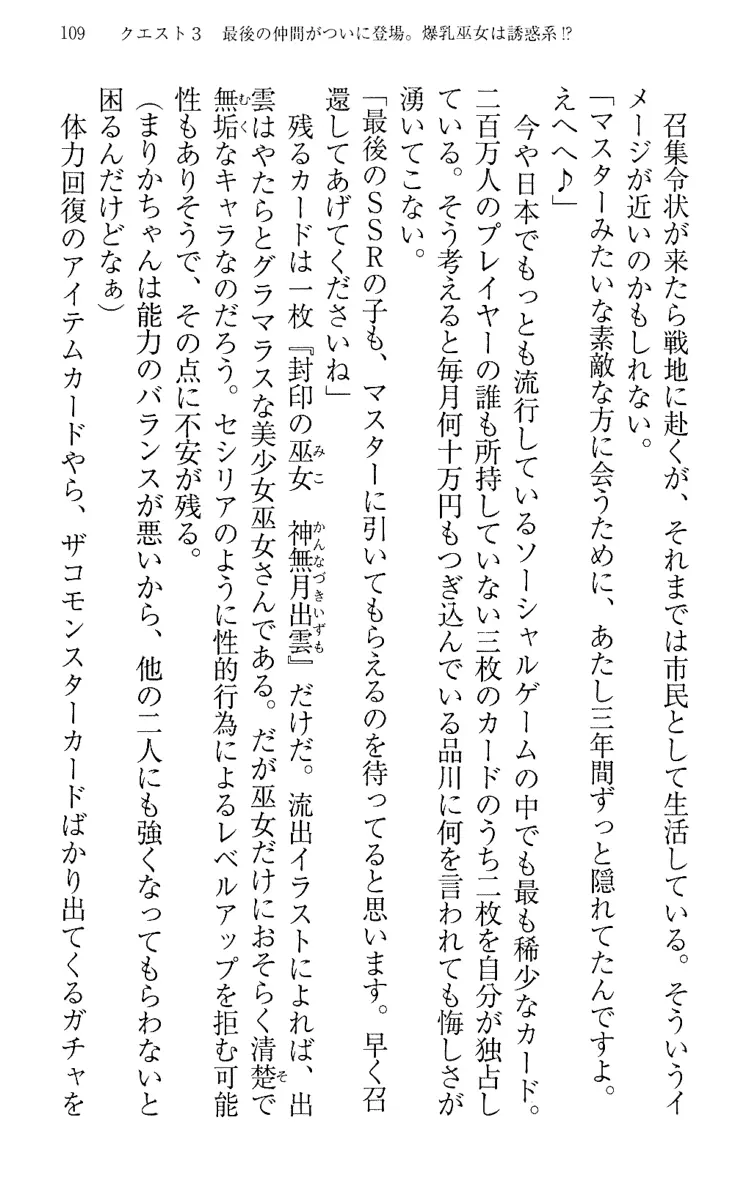 109　クエスト３　最後の仲間がついに登場。爆乳巫女は誘惑系!?
召集令状が来たら戦地に赴くが、それまでは市民として生活している。そういうイ
メージが近いのかもしれない。
「マスターみたいな素敵な方に会うために、あたし三年間ずっと隠れてたんですよ。
えへへ♪」
今や日本でもっとも流行しているソーシャルゲームの中でも最も稀少なカード。
二百万人のプレイヤーの誰も所持していない三枚のカードのうち二枚を自分が独占し
ている。そう考えると毎月何十万円もつぎ込んでいる品川に何を言われても悔しさが
湧いてこない。
「最後のＳＳＲの子も、マスターに引いてもらえるのを待ってると思います。早く召
還してあげてくださいね」
残るカードは一枚『封印の巫女　神無月出雲』だけだ。流出イラストによれば、出
雲はやたらとグラマラスな美少女巫女さんである。だが巫女だけにおそらく清楚で
無垢なキャラなのだろう。セシリアのように性的行為によるレベルアップを拒む可能
性もありそうで、その点に不安が残る。
（まりかちゃんは能力のバランスが悪いから、他の二人にも強くなってもらわないと
困るんだけどなぁ）
体力回復のアイテムカードやら、ザコモンスターカードばかり出てくるガチャを